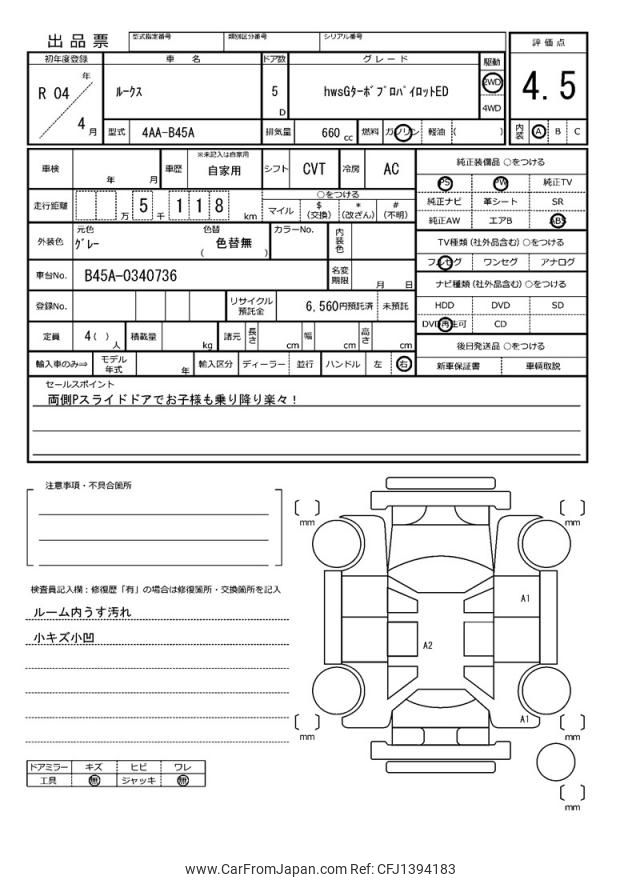 出品票 型式指定番号 類別区分番号 シリアル番号
評価点
初年度登録 車 名 ドア数 グレード 駆動
R 04 年 ルークス 5 D hwsGターボプロパイロットED 2WD 4WD
4.5
4 月 型式 4AA-B45A 排気量 660 cc 燃料 ガソリン 軽油 ( )
内装 A B C
車検 年 月 車歴 ※未記入は自家用 自家用 シフト CVT 冷房 AC
純正装備品 ○をつける
PS PW 純正TV
走行距離 万 5 千 1 1 8 km ○をつける
マイル $(交換) *(改ざん) #(不明)
純正ナビ 革シート SR
純正AW エアB ABS
外装色 元色 グレー 色替 ( 色替無 ) カラーNo. 内装色
TV種類(社外品含む) ○をつける
フルセグ ワンセグ アナログ
車台No. B45A-0340736 名変期限 月 日
ナビ種類(社外品含む) ○をつける
登録No. リサイクル預託金 6,560円預託済 未預託
HDD DVD SD
DVD再生可 CD
定員 4( ) 人 積載量 kg 諸元 長さ cm 幅 cm 高さ cm
後日発送品 ○をつける
輸入車のみ⇒ モデル年式 年 輸入区分 ディーラー 並行 ハンドル 左 右
新車保証書 車輌取説
セールスポイント
両側Pスライドドアでお子様も乗り降り楽々!
注意事項・不具合箇所
mm
mm
検査員記入欄:修復歴「有」の場合は修復箇所・交換箇所を記入
ルーム内うす汚れ
小キズ小凹
A1
A2
A1
mm
mm
mm
ドアミラー キズ ヒビ ワレ
工具 無 ジャッキ 無
www.CarFromJapan.com Ref: CFJ1394183